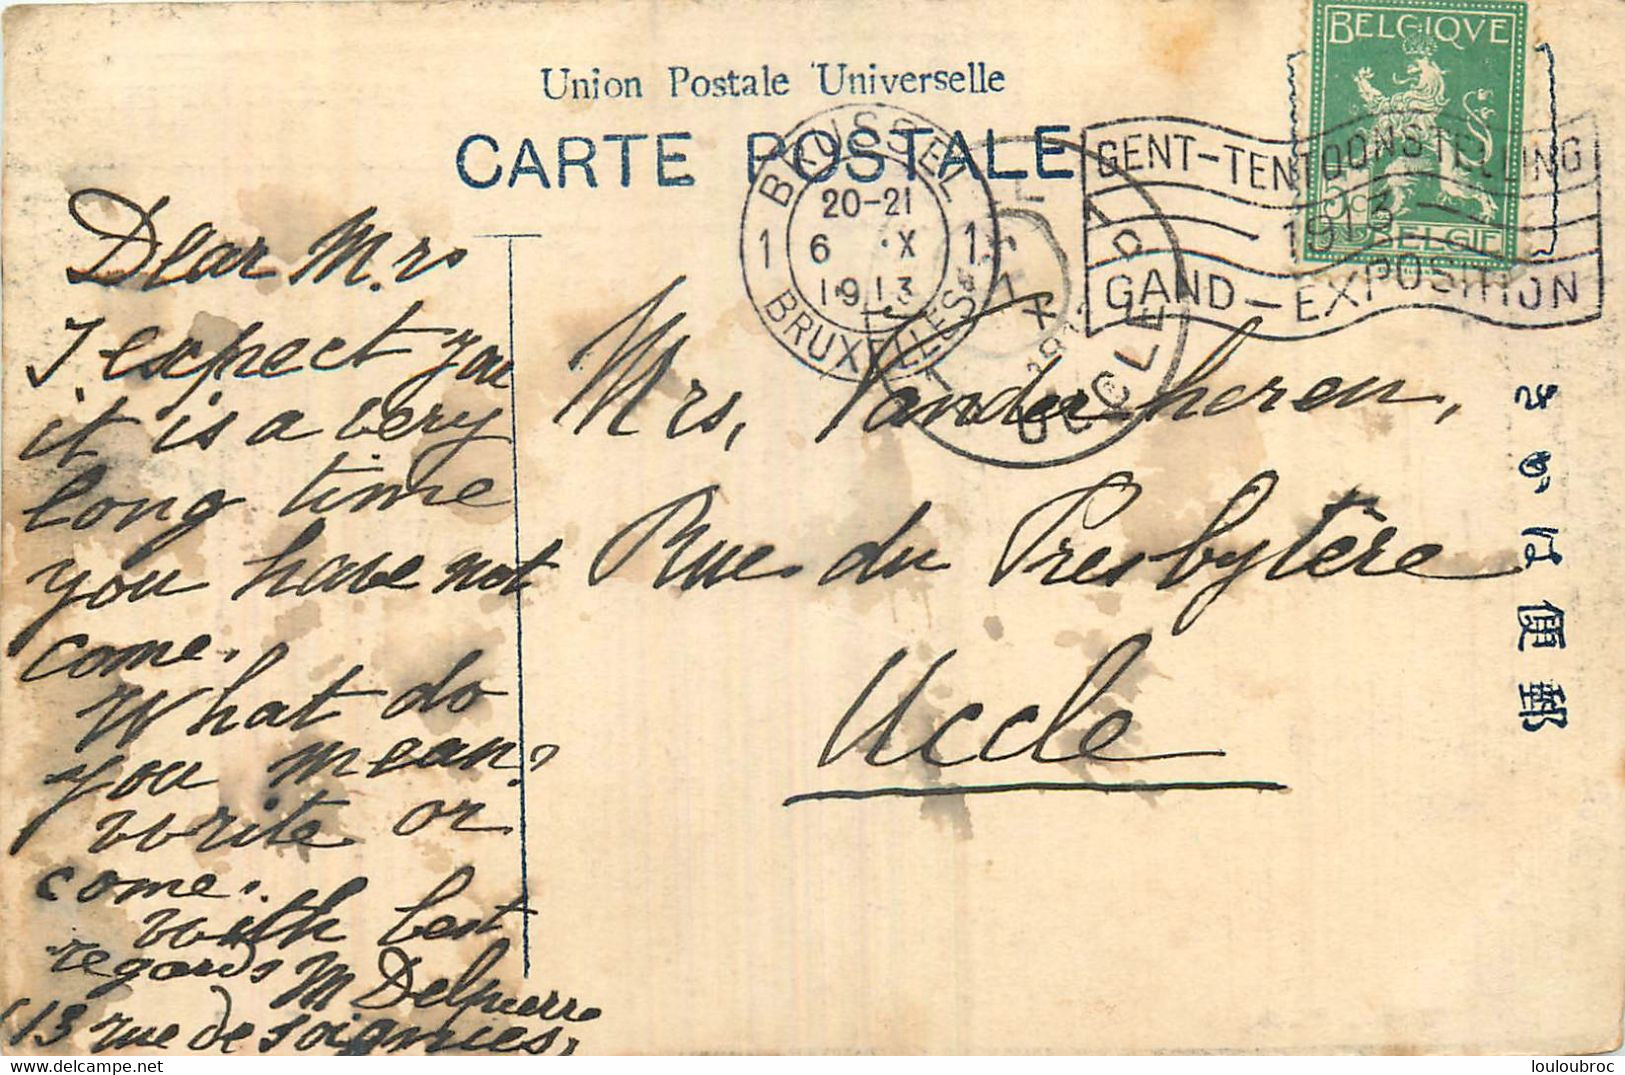 BELGIQVE
Union Postale Universelle
CARTE POSTALE
BRUSSEL
20-21
1 6 X 1
1913
BRUXELLES
GENT-TENTOONSTELLING
1913
GAND-EXPOSITION
BELGIE
UCCLE
Dear Mrs
I expect you
it is a very
long time
you have not
come.
What do
you mean?
write or
come.
with best
regards M Delpierre
113 rue de Soignies,
Mrs, Vanderheren,
Rue du Presbytère
Uccle
きかは便郵
delcampe.net
louloubroc